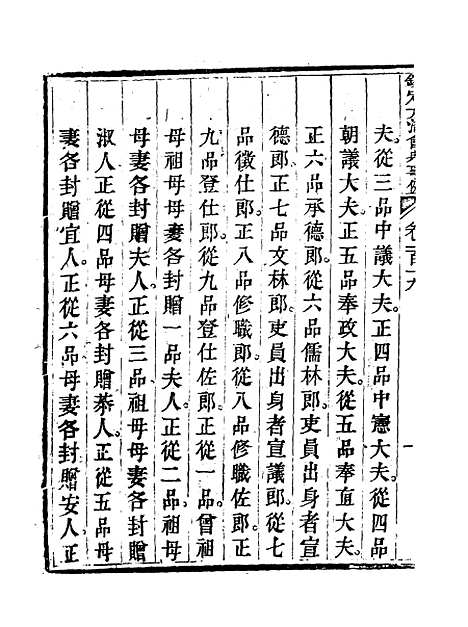 欽定大清會典事例 卷一百十九 一
夫。從三品中議大夫。正四品中憲大夫。從四品
朝議大夫。正五品奉政大夫。從五品奉直大夫。
正六品承德郎。從六品儒林郎。吏員出身者宣
德郎。正七品文林郎。吏員出身者宣議郎。從七
品徵仕郎。正八品修職郎。從八品修職佐郎。正
九品登仕郎。從九品登仕佐郎。正從一品。曾祖
母祖母母妻各封贈一品夫人。正從二品。祖母
母妻各封贈夫人。正從三品。祖母母妻各封贈
淑人。正從四品。母妻各封贈恭人。正從五品。母
妻各封贈宜人。正從六品。母妻各封贈安人。正